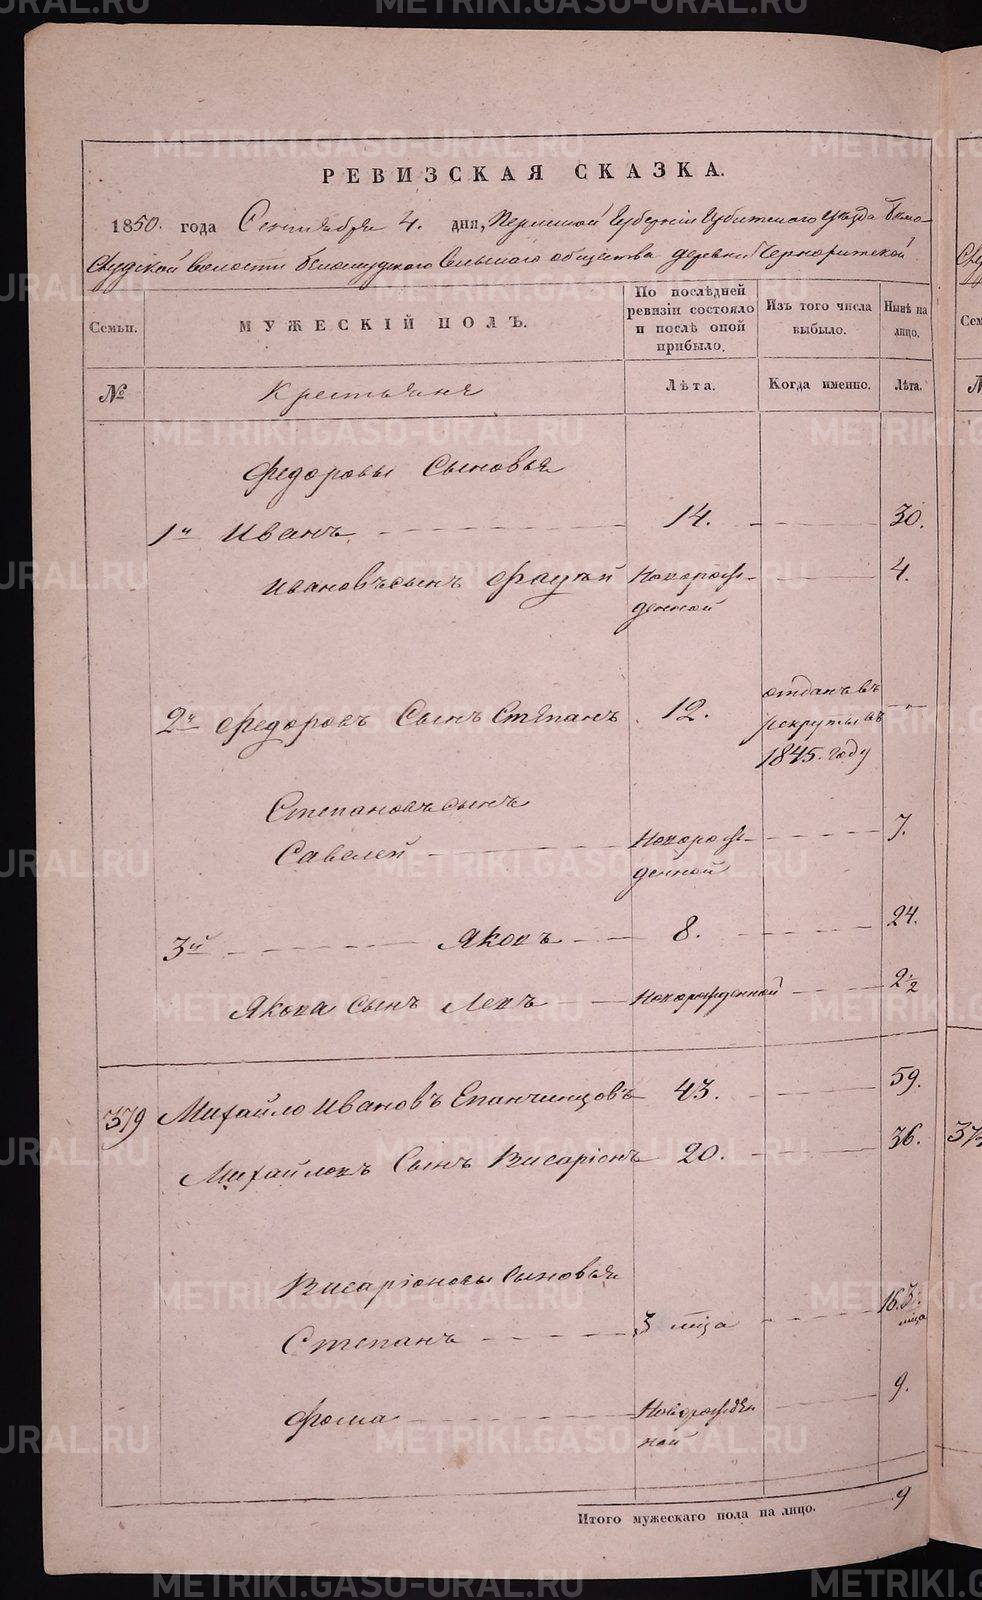 METRIKI.GASO-URAL.RU
РЕВИЗСКАЯ СКАЗКА.
1850. года Сентября 4. дня, Пермской Губернiи Ирбитскаго уезда Бело-
слудской волости Белослудского Сельского общества деревни Черноритской
Семьи.
МУЖЕСКIЙ ПОЛЪ.
По послѣдней ревизiи состояло и послѣ оной прибыло.
Изъ того числа выбыло.
Нынѣ на лицо.
№
Крестьяне
Лѣта.
Когда именно.
Лѣта.
Федоровы Сыновья
1й Иванъ 14. 30.
Ивановъ сынъ Фадѣй Новорож- 4.
денной
2й Федоровъ Сынъ Степанъ 12. отданъ въ
рекруты въ
1845. году
Степановъ сынъ
Савелей Новорож- 7.
денной
3й Яковъ 8. 24.
Якова сынъ Левъ Новорожденной 2½
379 Михайло Ивановъ Епанчинцовъ 43. 59.
Михайловъ Сынъ Висарiонъ 20. 36.
Висарiоновы Сыновья
Степанъ 3 мѣца 16. 3. мѣца
Фома Новорожден 9.
ной
Итого мужескаго пола на лицо. 9